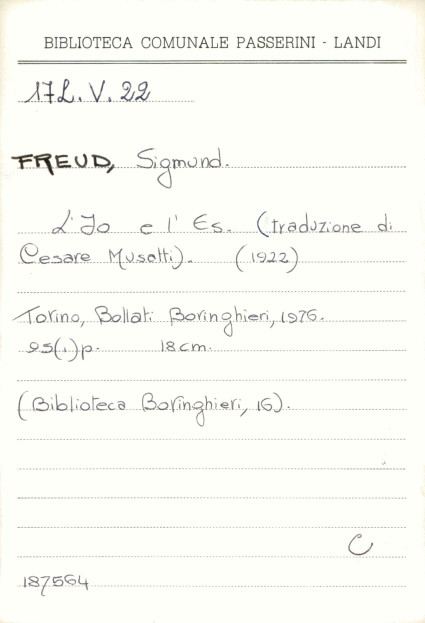 BIBLIOTECA COMUNALE PASSERINI - LANDI
17L.V.22
FREUD, Sigmund.
L'Io e l'Es. (traduzione di
Cesare Musatti). (1922)
Torino, Bollati Boringhieri, 1976.
95(1)p. 18cm.
(Biblioteca Boringhieri, 16).
C
187564